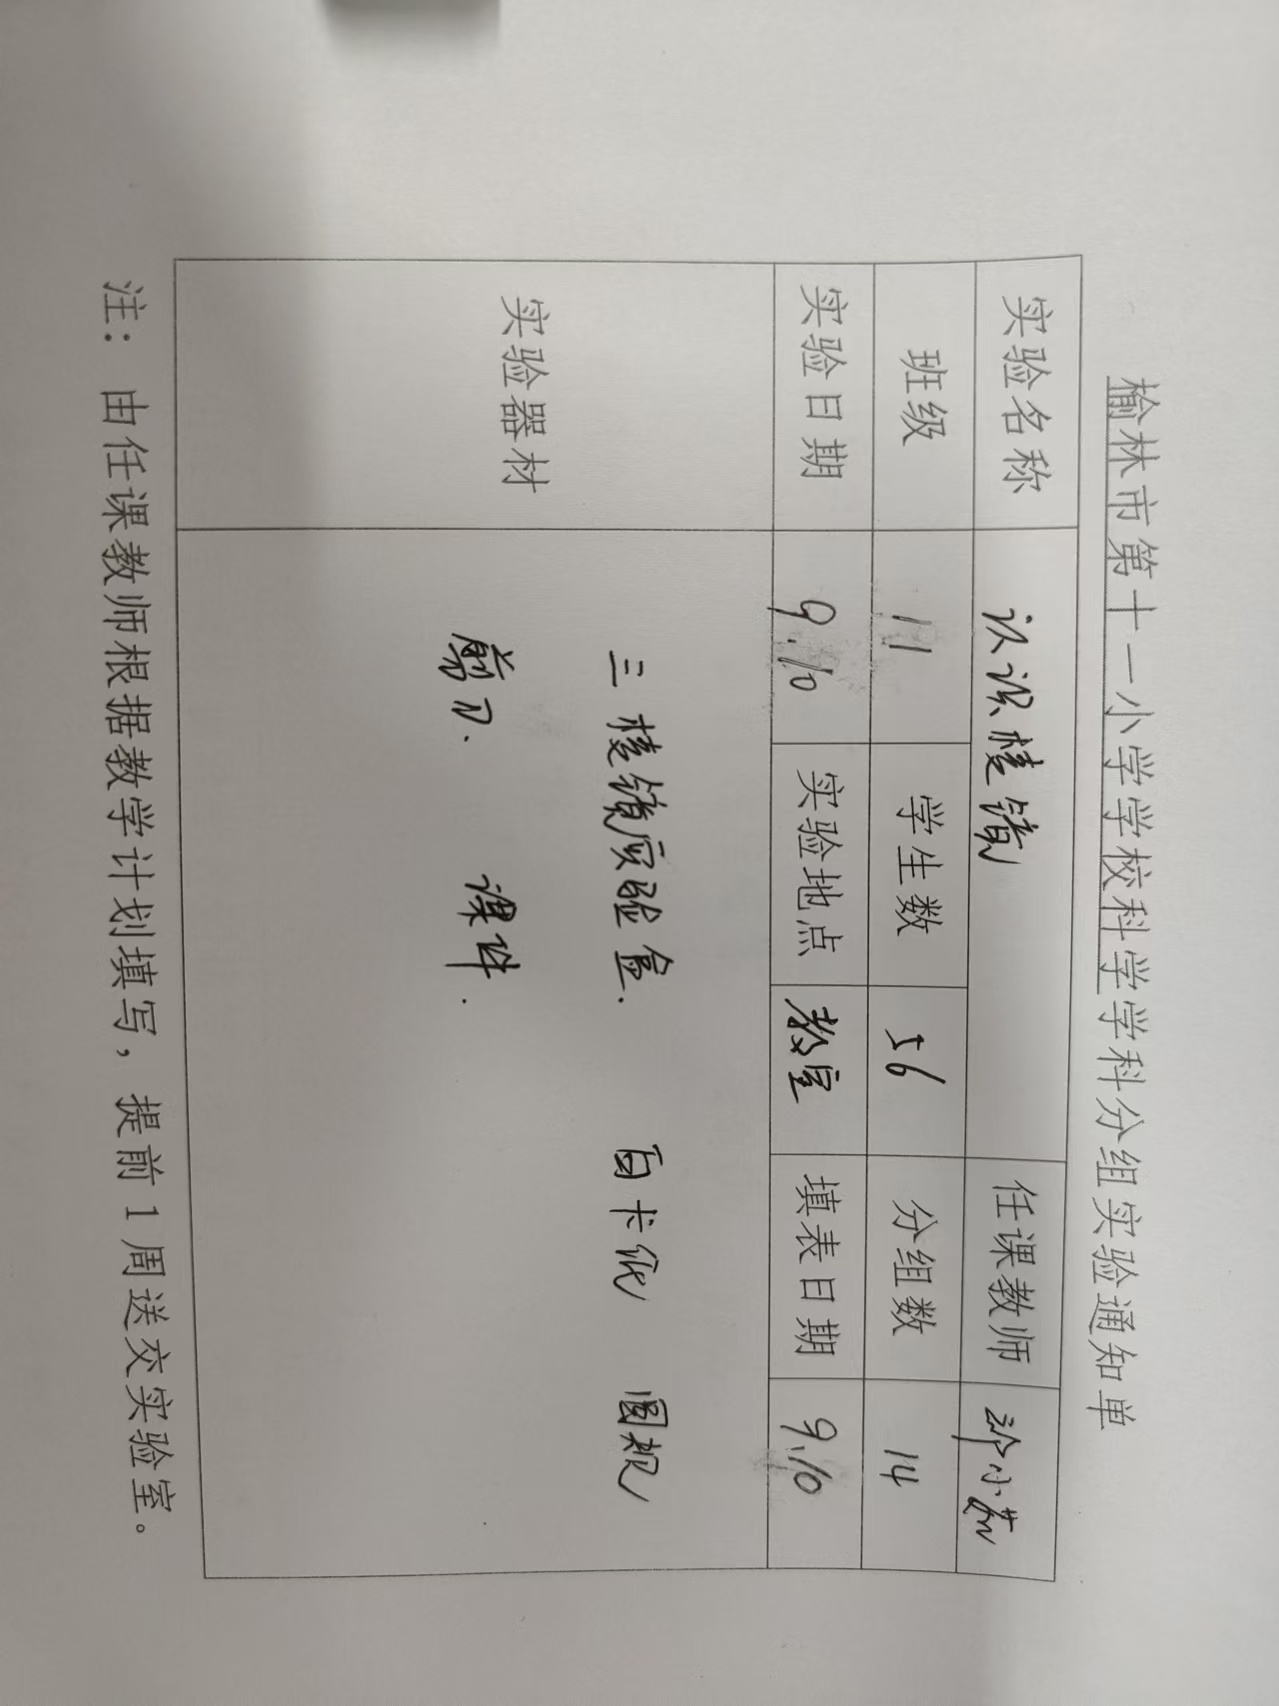 榆林市第十一小学学校科学学科分组实验通知单
实验名称 认识棱镜 任课教师 小茹
班级 11 学生数 56 分组数 14
实验日期 9.10 实验地点 教室 填表日期 9.10
实验器材 三棱镜实验盒. 白卡纸 圆规
剪刀. 课件.
注: 由任课教师根据教学计划填写,提前1周送交实验室。